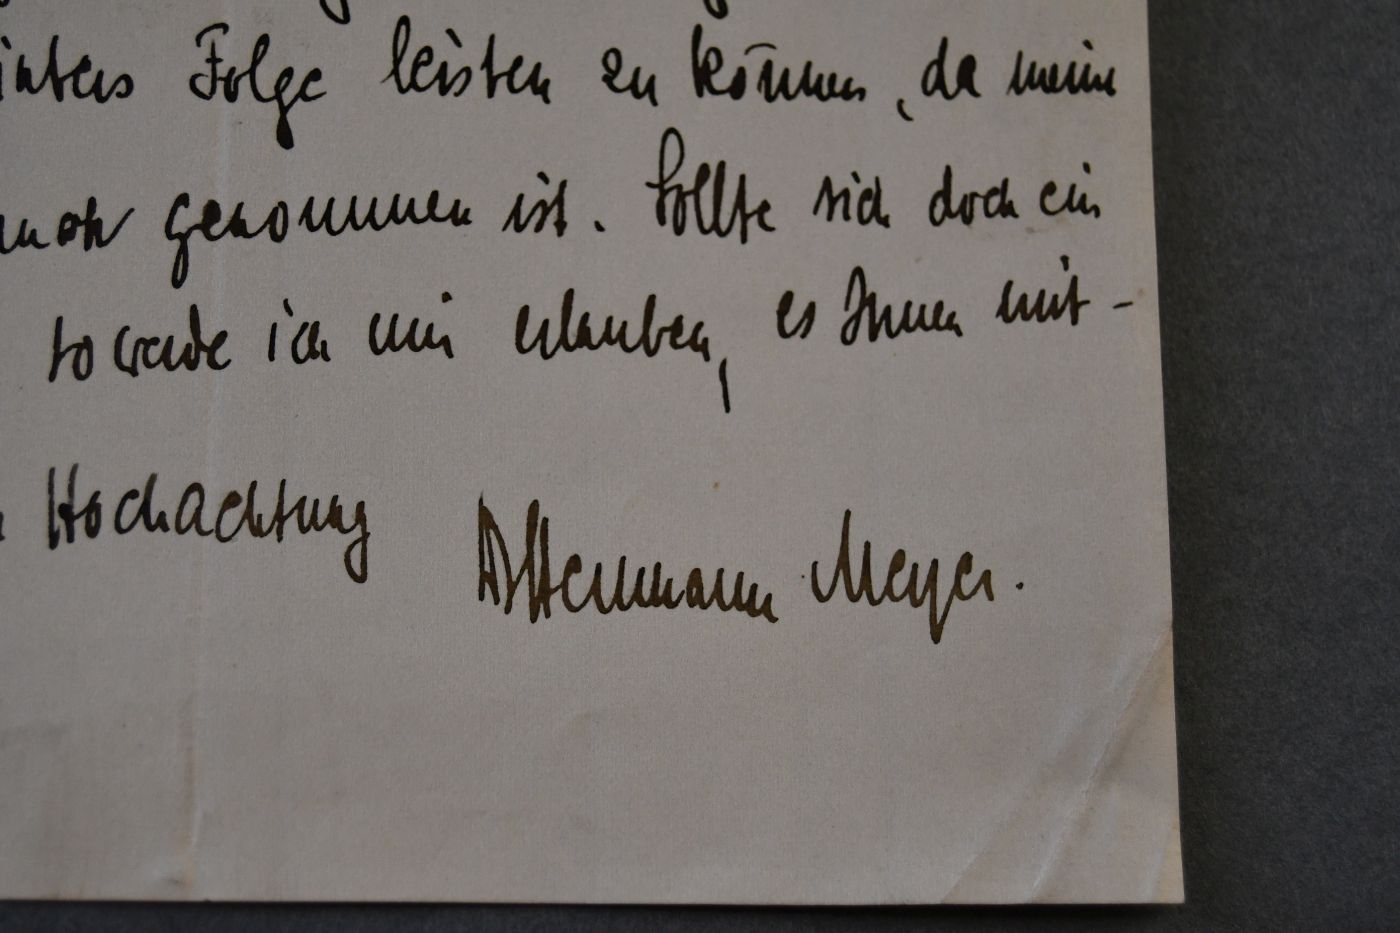 inters Folge leisten zu können, da meine
genommen ist. Sollte sich doch ein
so werde ich mir erlauben, es Ihnen mit-
Hochachtung
Meyer.